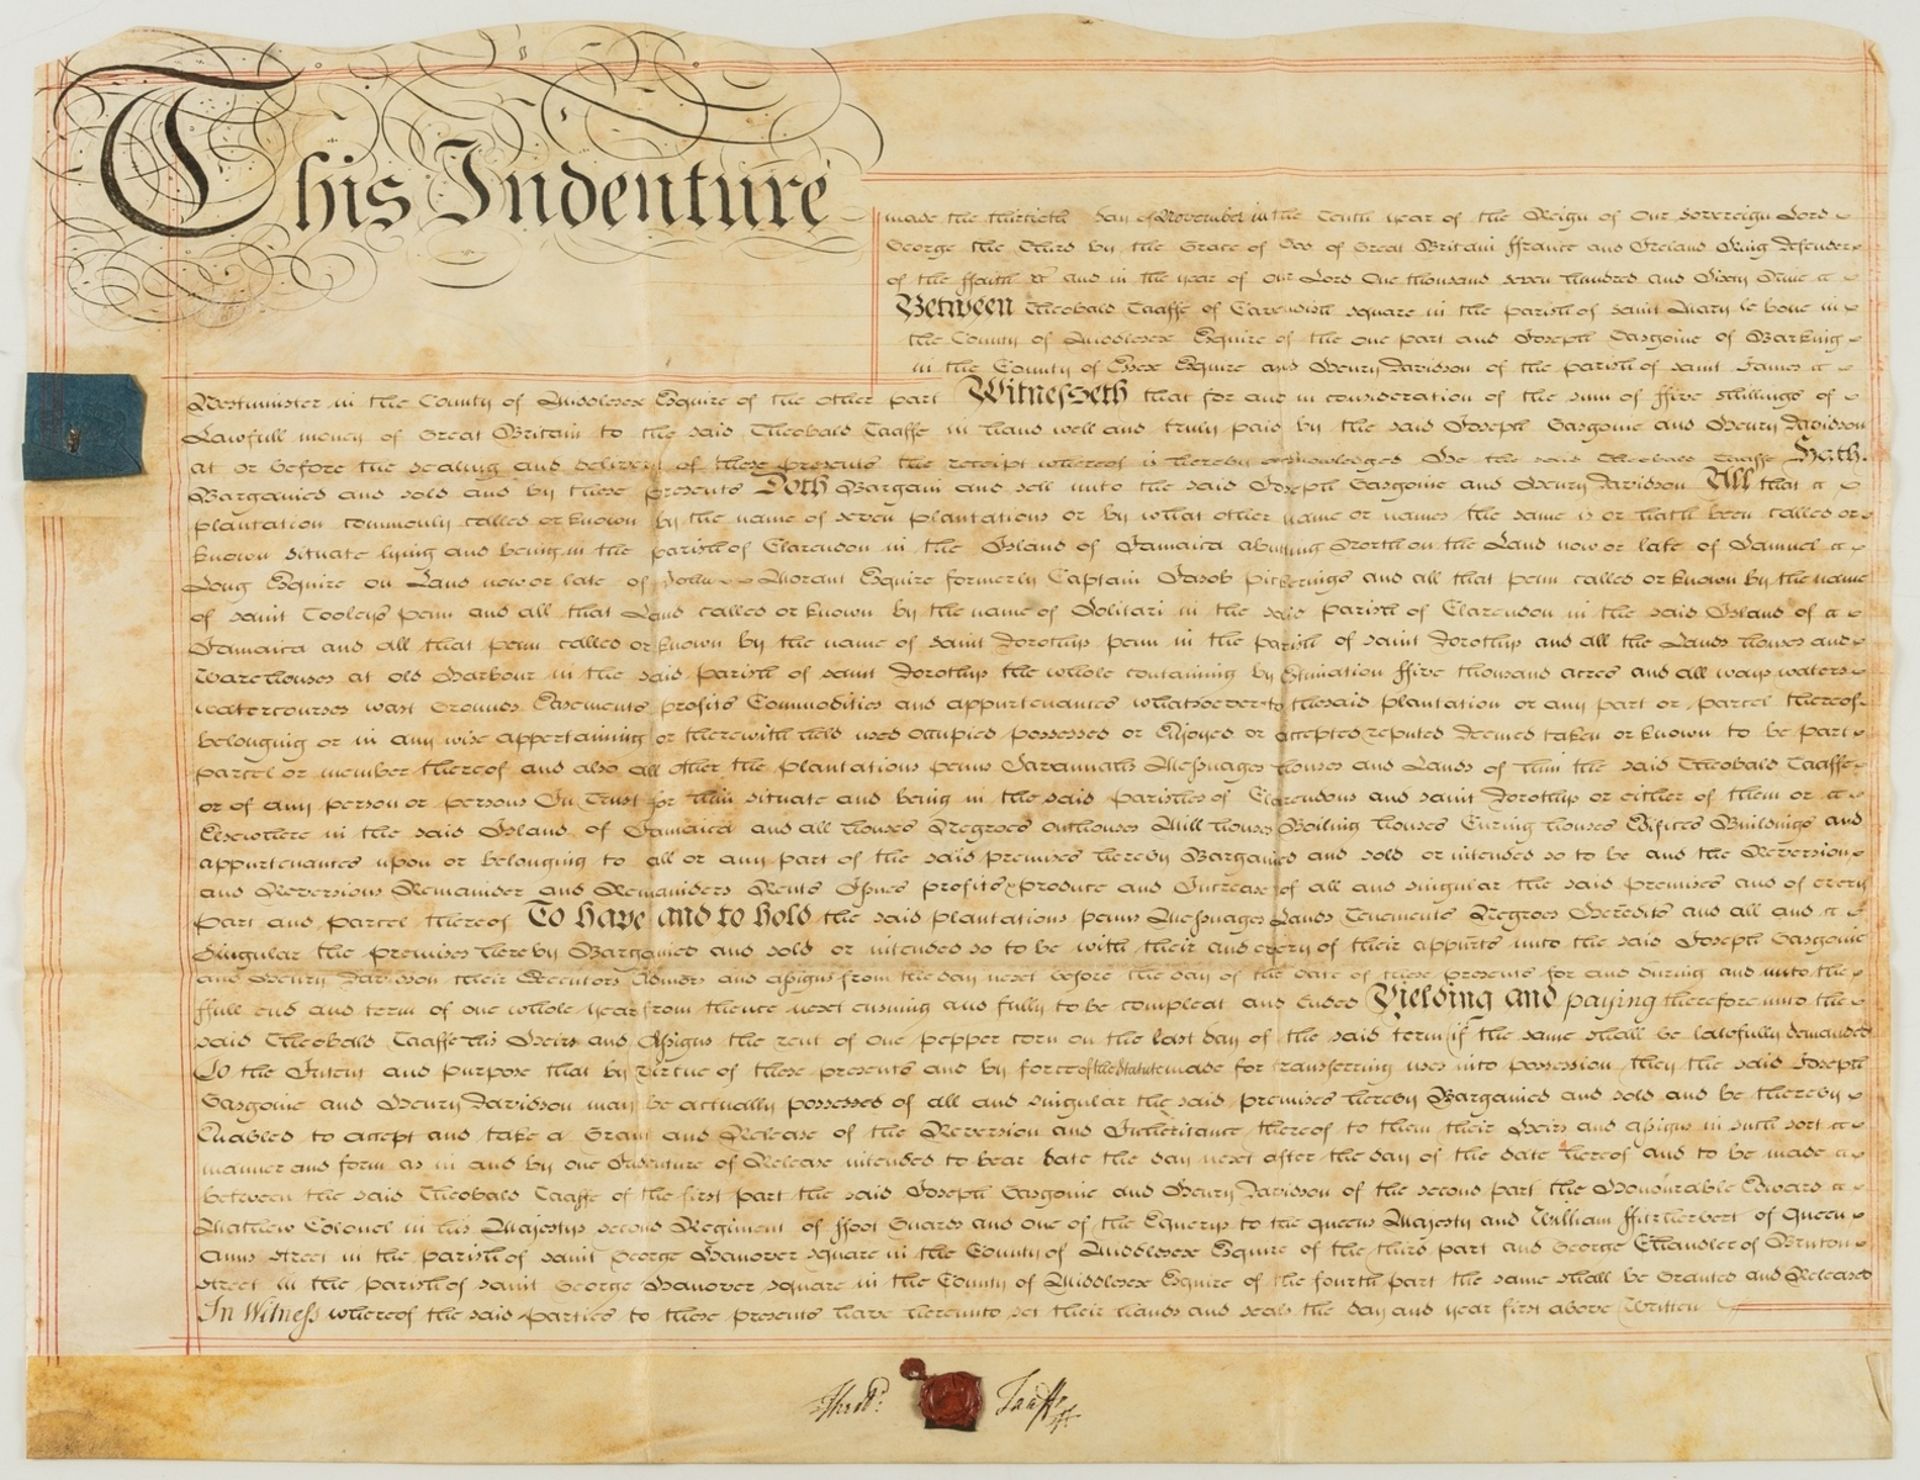 This Indenture
made the thirtieth day of November in the Tenth year of the Reign of Our Sovereign Lord
George the Third by the Grace of God of Great Britain ffrance and Ireland King Defender
of the ffaith &c and in the year of Our Lord One thousand seven hundred and Sixty Nine
Between Theobald Taaffe of Cavendish Square in the parish of Saint Mary le bone in
the County of Middlesex Esquire of the one part and Joseph Gasgoine of Barking
in the County of Essex Esquire and Henry Davidson of the parish of Saint James
Westminster in the County of Middlesex Esquire of the other part Witnesseth that for and in consideration of the sum of ffive shillings of
Lawfull money of Great Britain to the said Theobald Taaffe in hand well and truly paid by the said Joseph Gasgoine and Henry Davidson
at or before the sealing and delivery of these presents the receipt whereof is hereby acknowledged He the said Theobald Taaffe Hath
Bargained and sold and by these presents Doth Bargain and sell unto the said Joseph Gasgoine and Henry Davidson All that
plantation commonly called or known by the name of seven plantations or by what other name or names the same is or hath been called or
known situate lying and being in the parish of Clarendon in the Island of Jamaica abutting North on the Land now or late of Samuel
Long Esquire on Land now or late of John Morant Esquire formerly Captain Jacob Pickerings and all that penn called or known by the name
of Saint Tooleys penn and all that Land called or known by the name of Solitari in the said parish of Clarendon in the said Island of
Jamaica and all that penn called or known by the name of Saint Dorothys penn in the parish of Saint Dorothys and all the Lands houses and
Warehouses at old Harbour in the said parish of Saint Dorothys the whole containing by Estimation ffive thousand acres and all ways waters
watercourses wast Grounds Easements profits Commodities and appurtenances whatsoever to the said plantation or any part or parcel thereof
belonging or in any wise appertaining or therewith held used occupied possessed or Enjoyed or accepted reputed deemed taken or known to be part
parcel or member thereof and also all other the plantations penns Savannahs Messuages houses and Lands of him the said Theobald Taaffe
or of any person or persons In Trust for him situate and being in the said parishes of Clarendons and Saint Dorothys or either of them or
Elsewhere in the said Island of Jamaica and all houses Negroes outhouses Mill houses Boiling houses Curing houses Edifices Buildings and
appurtenances upon or belonging to all or any part of the said premises hereby Bargained and sold or intended so to be and the Reversion
and Reversions Remainder and Remainders Rents Issues profits produce and Increase of all and singular the said premises and of every
part and parcel thereof To have and to hold the said plantations penns Messuages Lands Tenements Negroes Heredits and all and
Singular the premises hereby Bargained and sold or intended so to be with their and every of their appurts unto the said Joseph Gasgoine
and Henry Davidson their Executors Admors and assigns from the day next before the day of the date of these presents for and during and unto the
ffull end and term of one whole year from thence next ensuing and fully to be compleat and Ended Yielding and paying therefore unto the
said Theobald Taaffe his Heirs and Assigns the rent of one pepper corn on the last day of the said term if the same shall be lawfully demanded
To the Intent and purpose that by virtue of these presents and by force of the Statute made for transferring uses into possession they the said Joseph
Gasgoine and Henry Davidson may be actually possessed of all and singular the said premises hereby Bargained and sold and be thereby
Enabled to accept and take a Grant and Release of the Reversion and Inheritance thereof to them their Heirs and assigns in such sort
manner and form as in and by one Indenture of Release intended to bear date the day next after the day of the date hereof and to be made
between the said Theobald Taaffe of the first part the said Joseph Gasgoine and Henry Davidson of the second part the Honourable Edward
Matthew Colonel in his Majestys second Regiment of ffoot Guards and one of the Equerys to the queens Majesty and William ffitzherbert of Queen
Anns street in the parish of Saint George Hanover square in the County of Middlesex Esquire of the third part and George Chandler of Bruton
street in the parish of Saint George Hanover square in the County of Middlesex Esquire of the fourth part the same shall be Granted and Released
In Witness whereof the said parties to these presents have hereunto set their hands and seals the day and year first above Written
Theobd: Taaffe